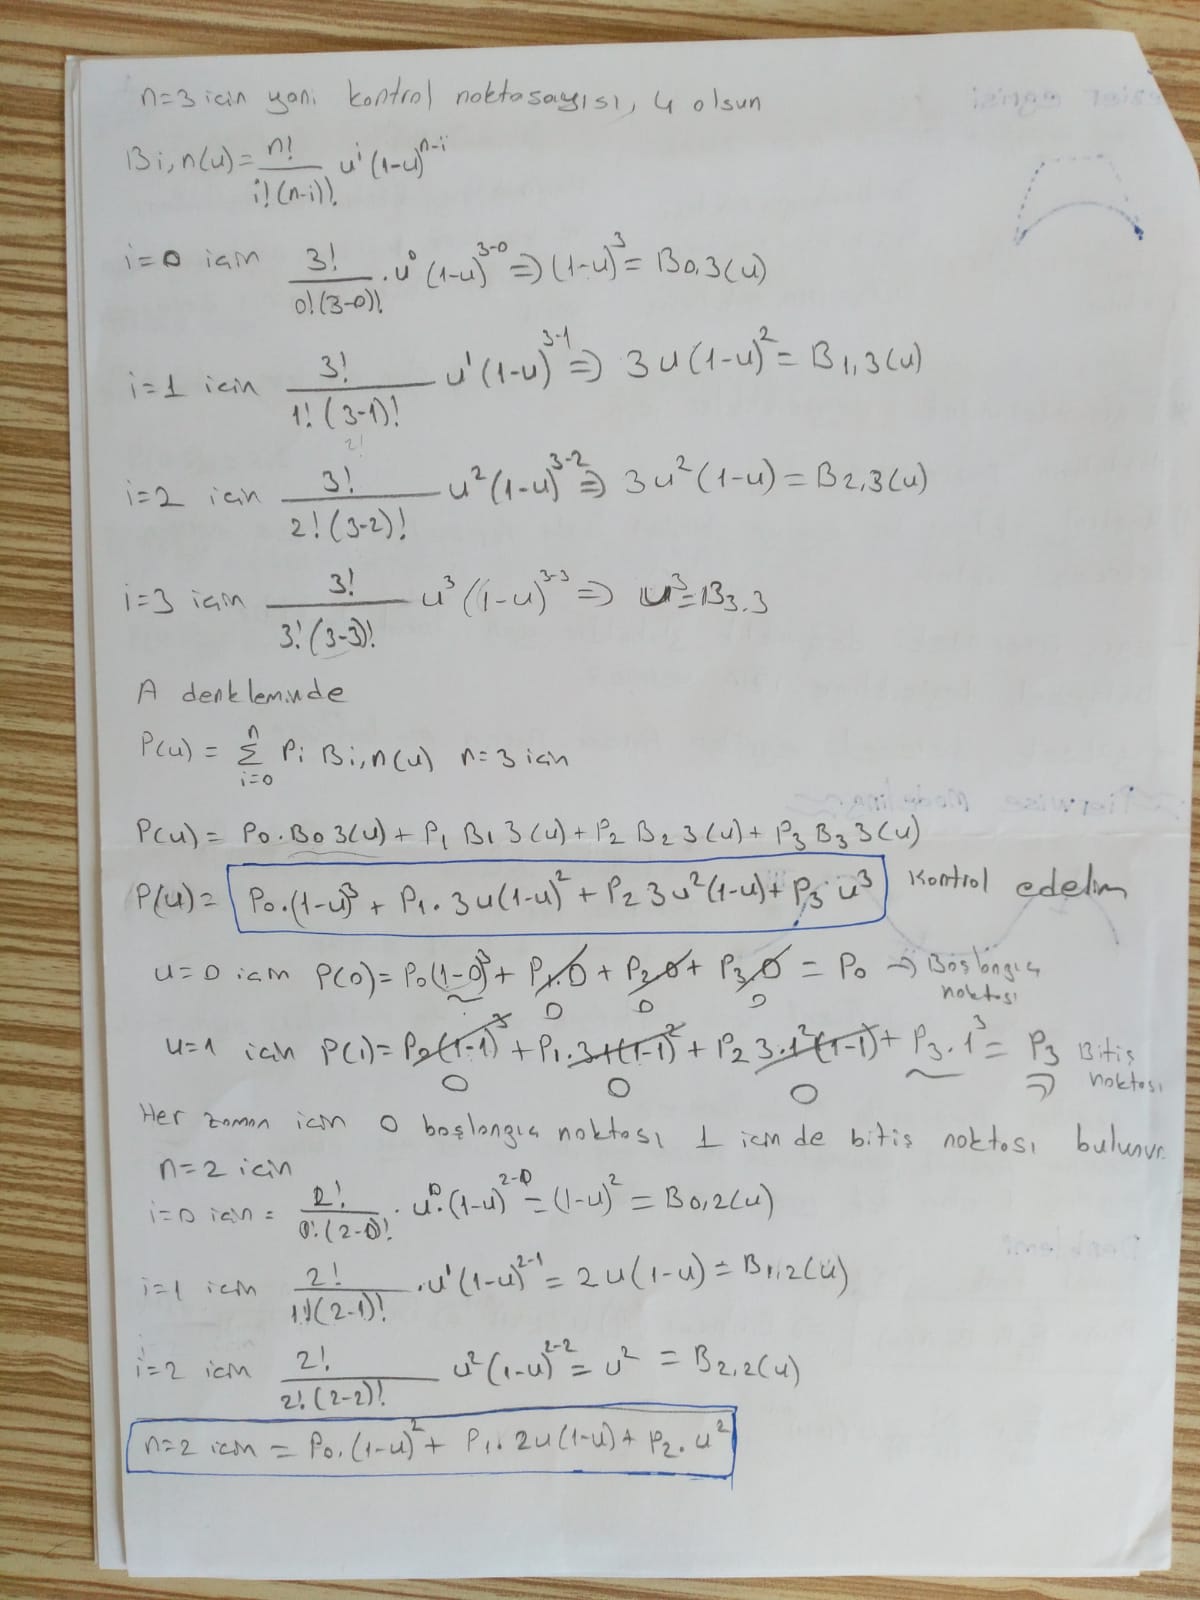 n=3 icin yani kontrol noktasayısı, 4 olsun
Bi,n(u)= n!/(i!(n-i)!) u^i (1-u)^(n-i)
i=0 icin 3!/(0!(3-0)!) . u^0 (1-u)^(3-0) => (1-u)^3 = B0,3(u)
i=1 icin 3!/(1!(3-1)!) u^1 (1-u)^(3-1) => 3u(1-u)^2 = B1,3(u)
2!
i=2 icin 3!/(2!(3-2)!) u^2 (1-u)^(3-2) => 3u^2(1-u) = B2,3(u)
i=3 icin 3!/(3!(3-3)!) u^3 (1-u)^(3-3) => u^3 = B3.3
A denkleminde
P(u) = Σ_{i=0}^{n} Pi Bi,n(u) n=3 icin
P(u) = P0.B0 3(u) + P1 B1 3(u) + P2 B2 3(u) + P3 B3 3(u)
P(u) = P0.(1-u)^3 + P1.3u(1-u)^2 + P2 3u^2(1-u) + P3 u^3 Kontrol edelim
u=0 icin P(0)= P0(1-0)^3 + P1.0 + P2 0 + P3 0 = P0 => Başlangıç
noktası
0 0 0
u=1 icin P(1)= P0(1-1)^3 + P1.3.1(1-1)^2 + P2 3.1^2(1-1) + P3.1^3 = P3 Bitiş
0 0 0 => noktası
Her zaman icin 0 başlangıç noktası 1 icin de bitiş noktası bulunur.
n=2 icin
i=0 icin = 2!/(0!(2-0)!) . u^0.(1-u)^(2-0) = (1-u)^2 = B0,2(u)
i=1 icin 2!/(1!(2-1)!) .u^1 (1-u)^(2-1) = 2u(1-u) = B1,2(u)
i=2 icin 2!/(2!(2-2)!) u^2 (1-u)^(2-2) = u^2 = B2,2(u)
n=2 icin = P0.(1-u)^2 + P1.2u(1-u) + P2.u^2